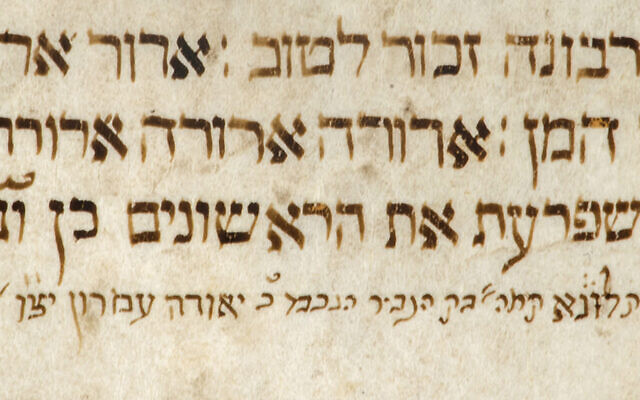 רבונה זכור לטוב : ארור אר
המן : ארורה ארורה ארורה
שפרעת את הראשונים כן
בת הגביר הנכבד כ׳ יאודה עמרון יצ״ו